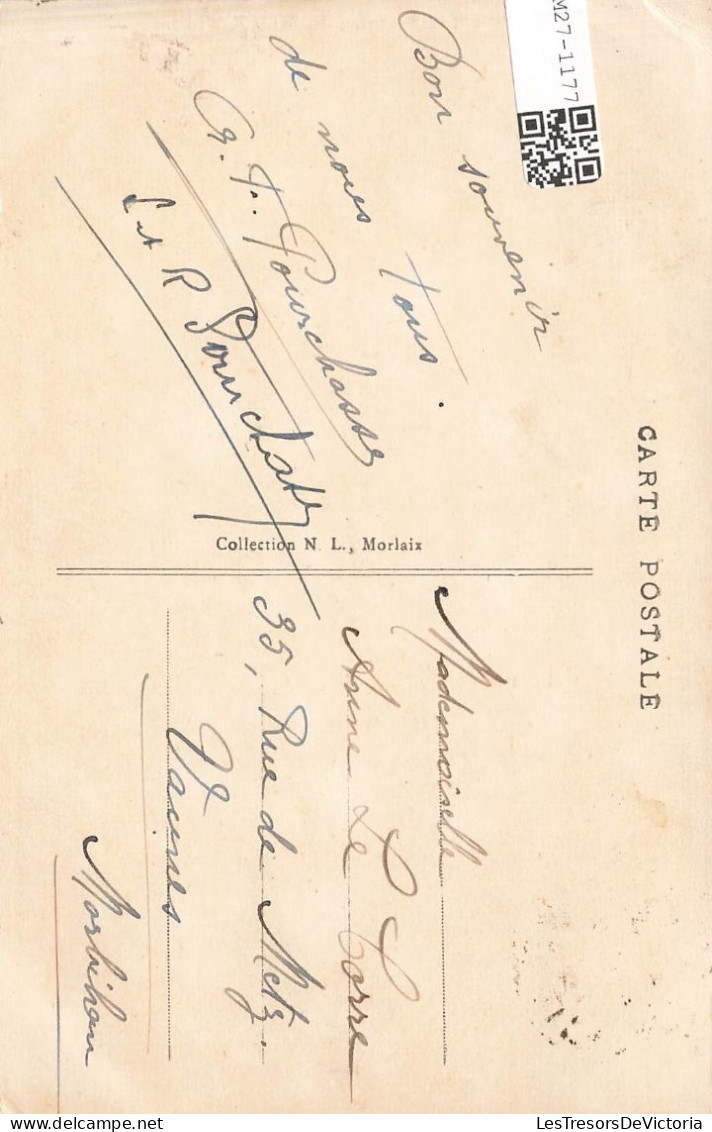 CARTE POSTALE
Bon souvenir
de nous tous.
Pourchasse
R Pourchasse
Collection N. L., Morlaix
Mademoiselle
Anne Le Corre
35, Rue de Metz.
Vannes
Morbihan
M27-1177
delcampe.net
LesTresorsDeVictoria